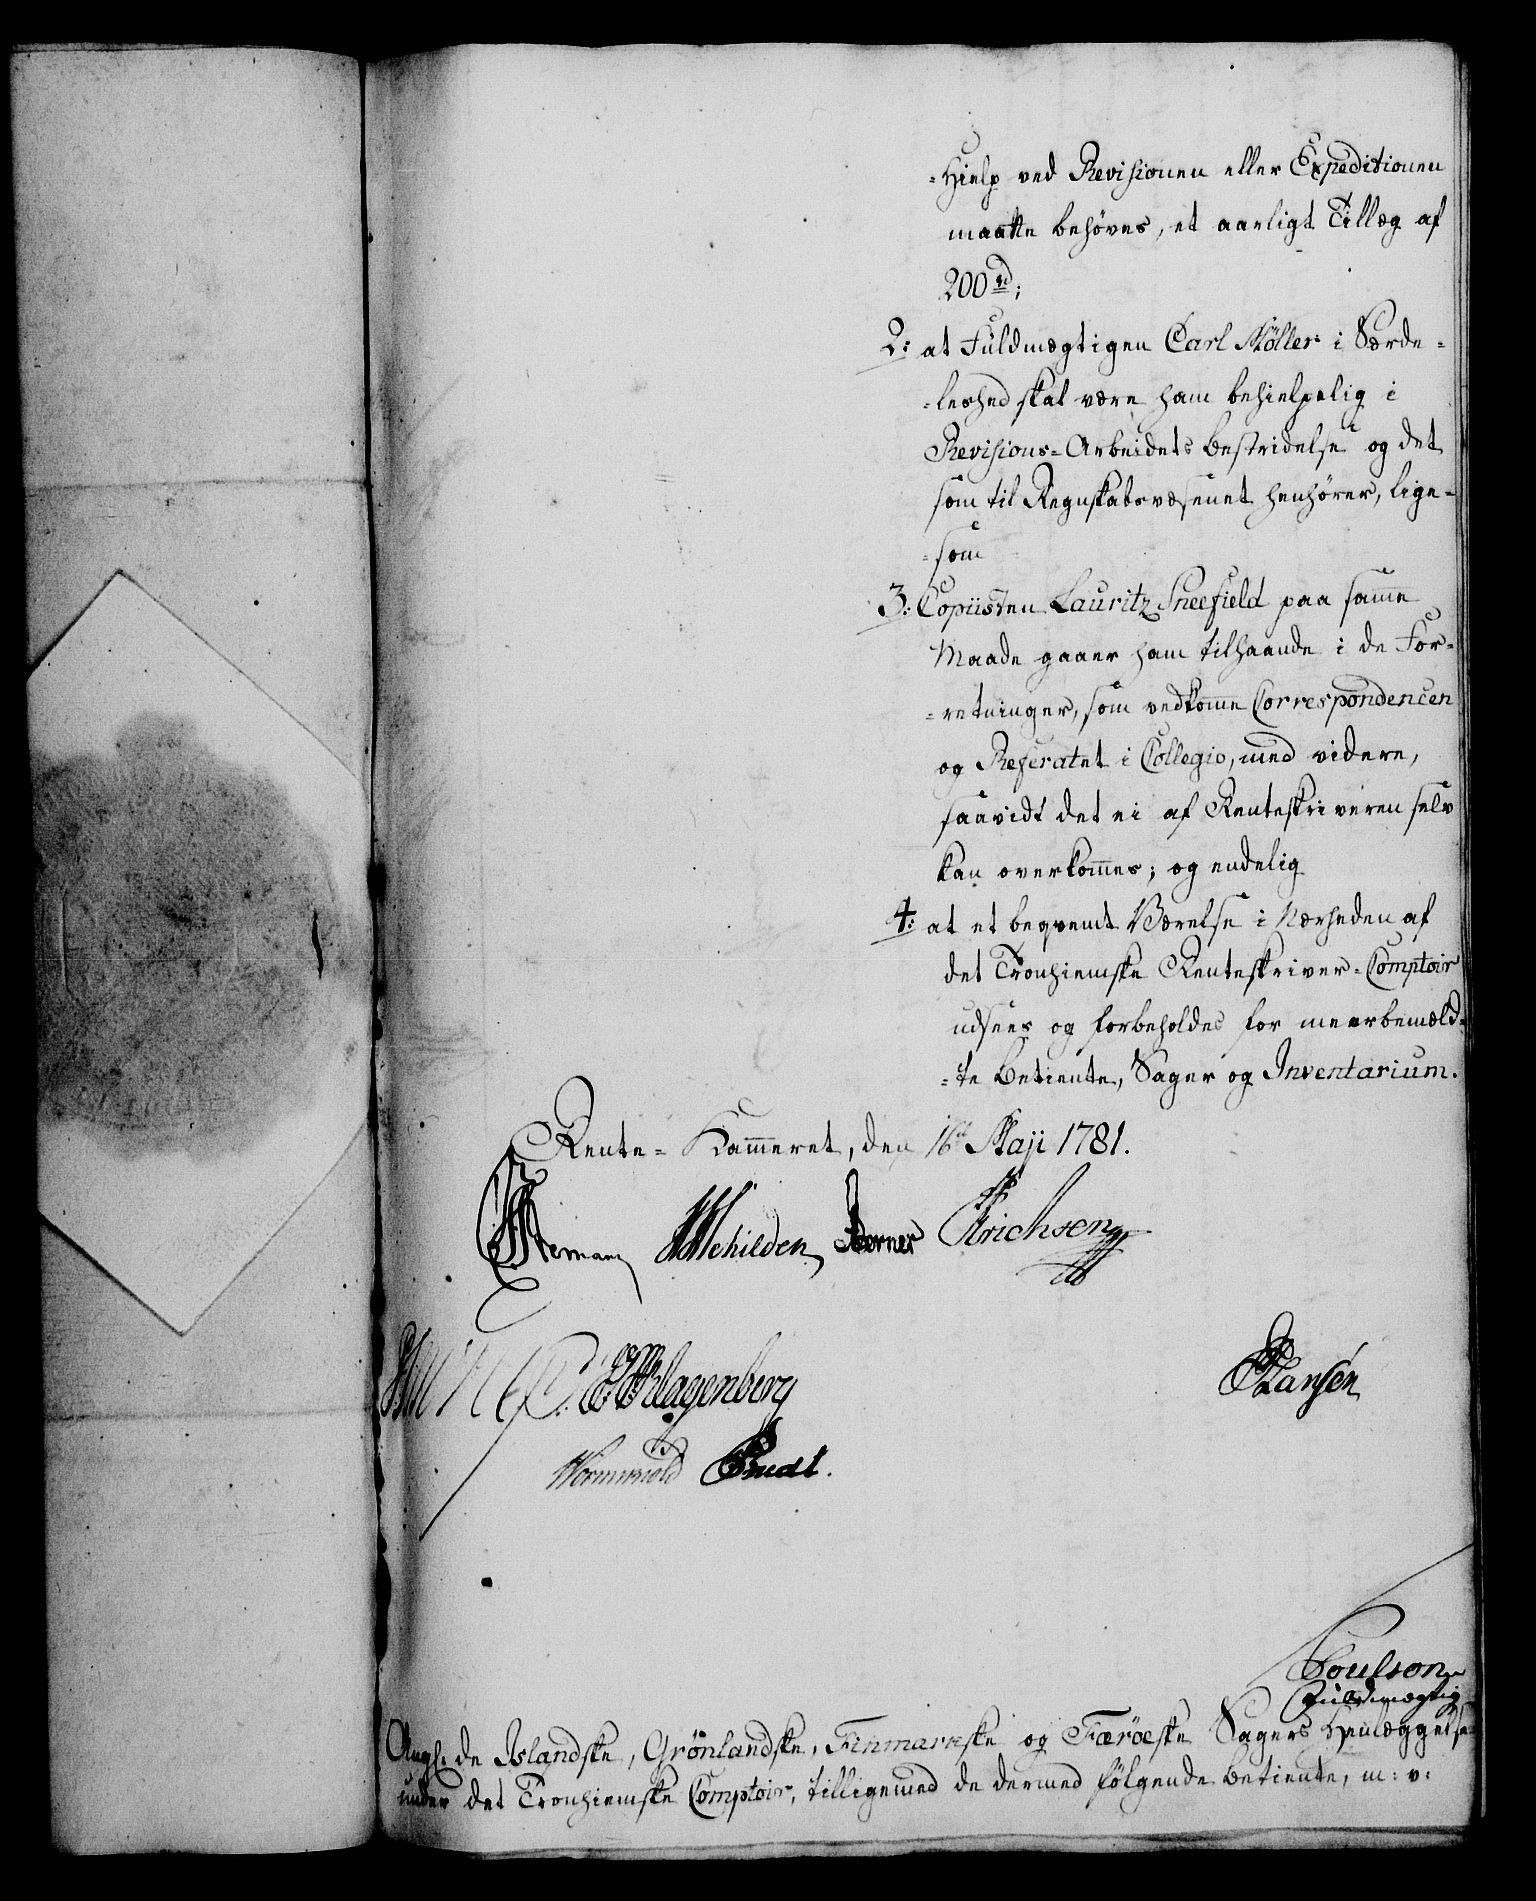 -Hielp ved Revisionen eller Expeditionen
maatte behøves, et aarligt Tillæg af
200 rd;
2: at Fuldmægtigen Carl Møller i Særde-
-leshed skal være ham behielpelig i
Revisions-Arbeidets Bestridelse og det
som til Regnskabsvæsenet henhører, lige-
-som
3: Copiisten Lauritz Sneefield paa samme
Maade gaaer ham tilhaande i de For-
-retninger, som vedkomme Correspondencen
og Referatet i Collegio, med videre,
saavidt det ei af Renteskriveren selv
kan overkommes; og endelig
4: at et beqvemt Værelse i Nærheden af
det Tronhiemske Renteskriver-Comptoir
udsees og forbeholdes for meerbemeld-
-te Betiente, Sager og Inventarium.
Rente-Kammeret, den 16de Maji 1781.
Stemann Schilden Berner Erichsen
Klagenberg Hansen
Wormskiold
Poulson
Fuldmægtig
Ang: de Islandske, Grønlandske, Finmarkske og Færøeske Sagers Henlæggelse
under det Tronhiemske Comptoir, tilligemed de dermed følgende Betiente, m: v: